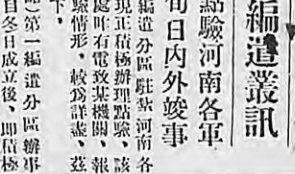 編遣叢訊
點驗河南各軍
旬日內外竣事
編遣分區駐紮河南各
現正積極辦理點驗、該
處昨有電致某機關、報
驗情形、較爲詳盡、茲
下、
第一編遣分區辦事
自冬日成立後、即積極